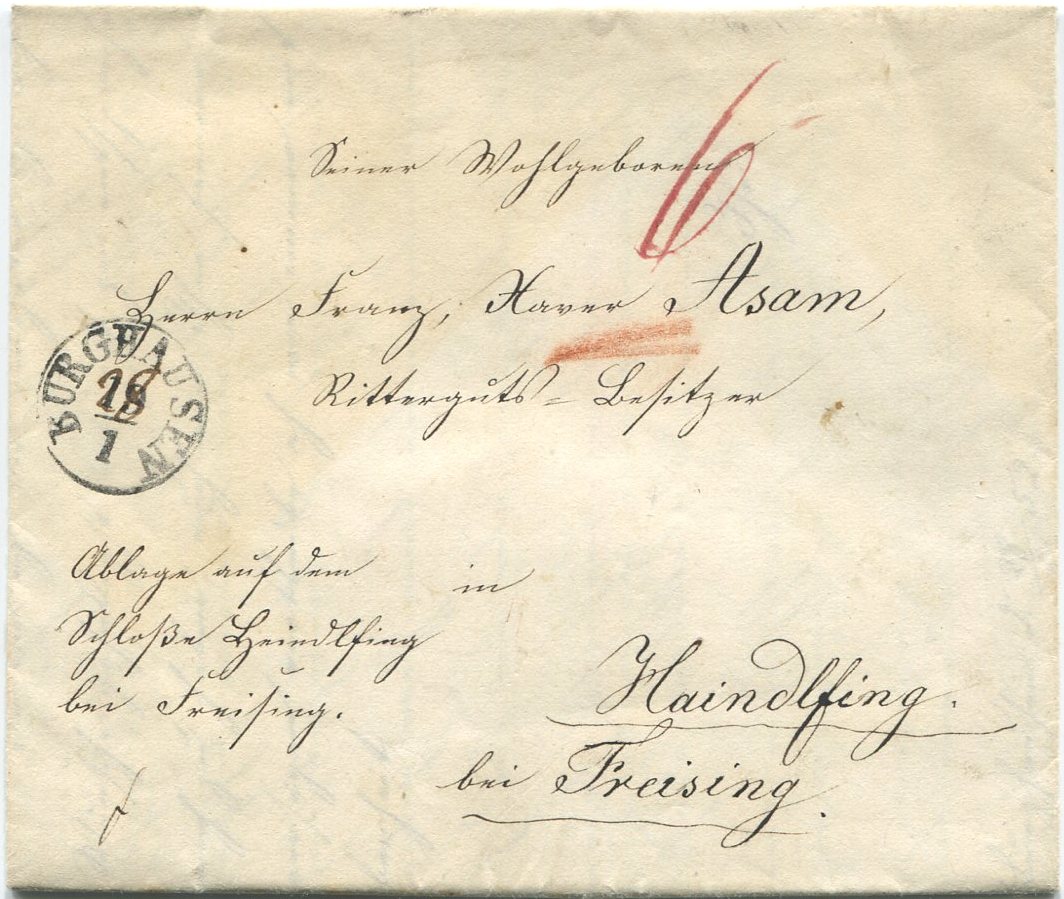 6
Seiner Wohlgeboren
Herrn Franz, Xaver Asam,
Ritterguts-Besitzer
BURGHAUSEN
1
Ablage auf dem
Schloße Heindlfing
bei Freising.
in
Haindlfing.
bei Freising.